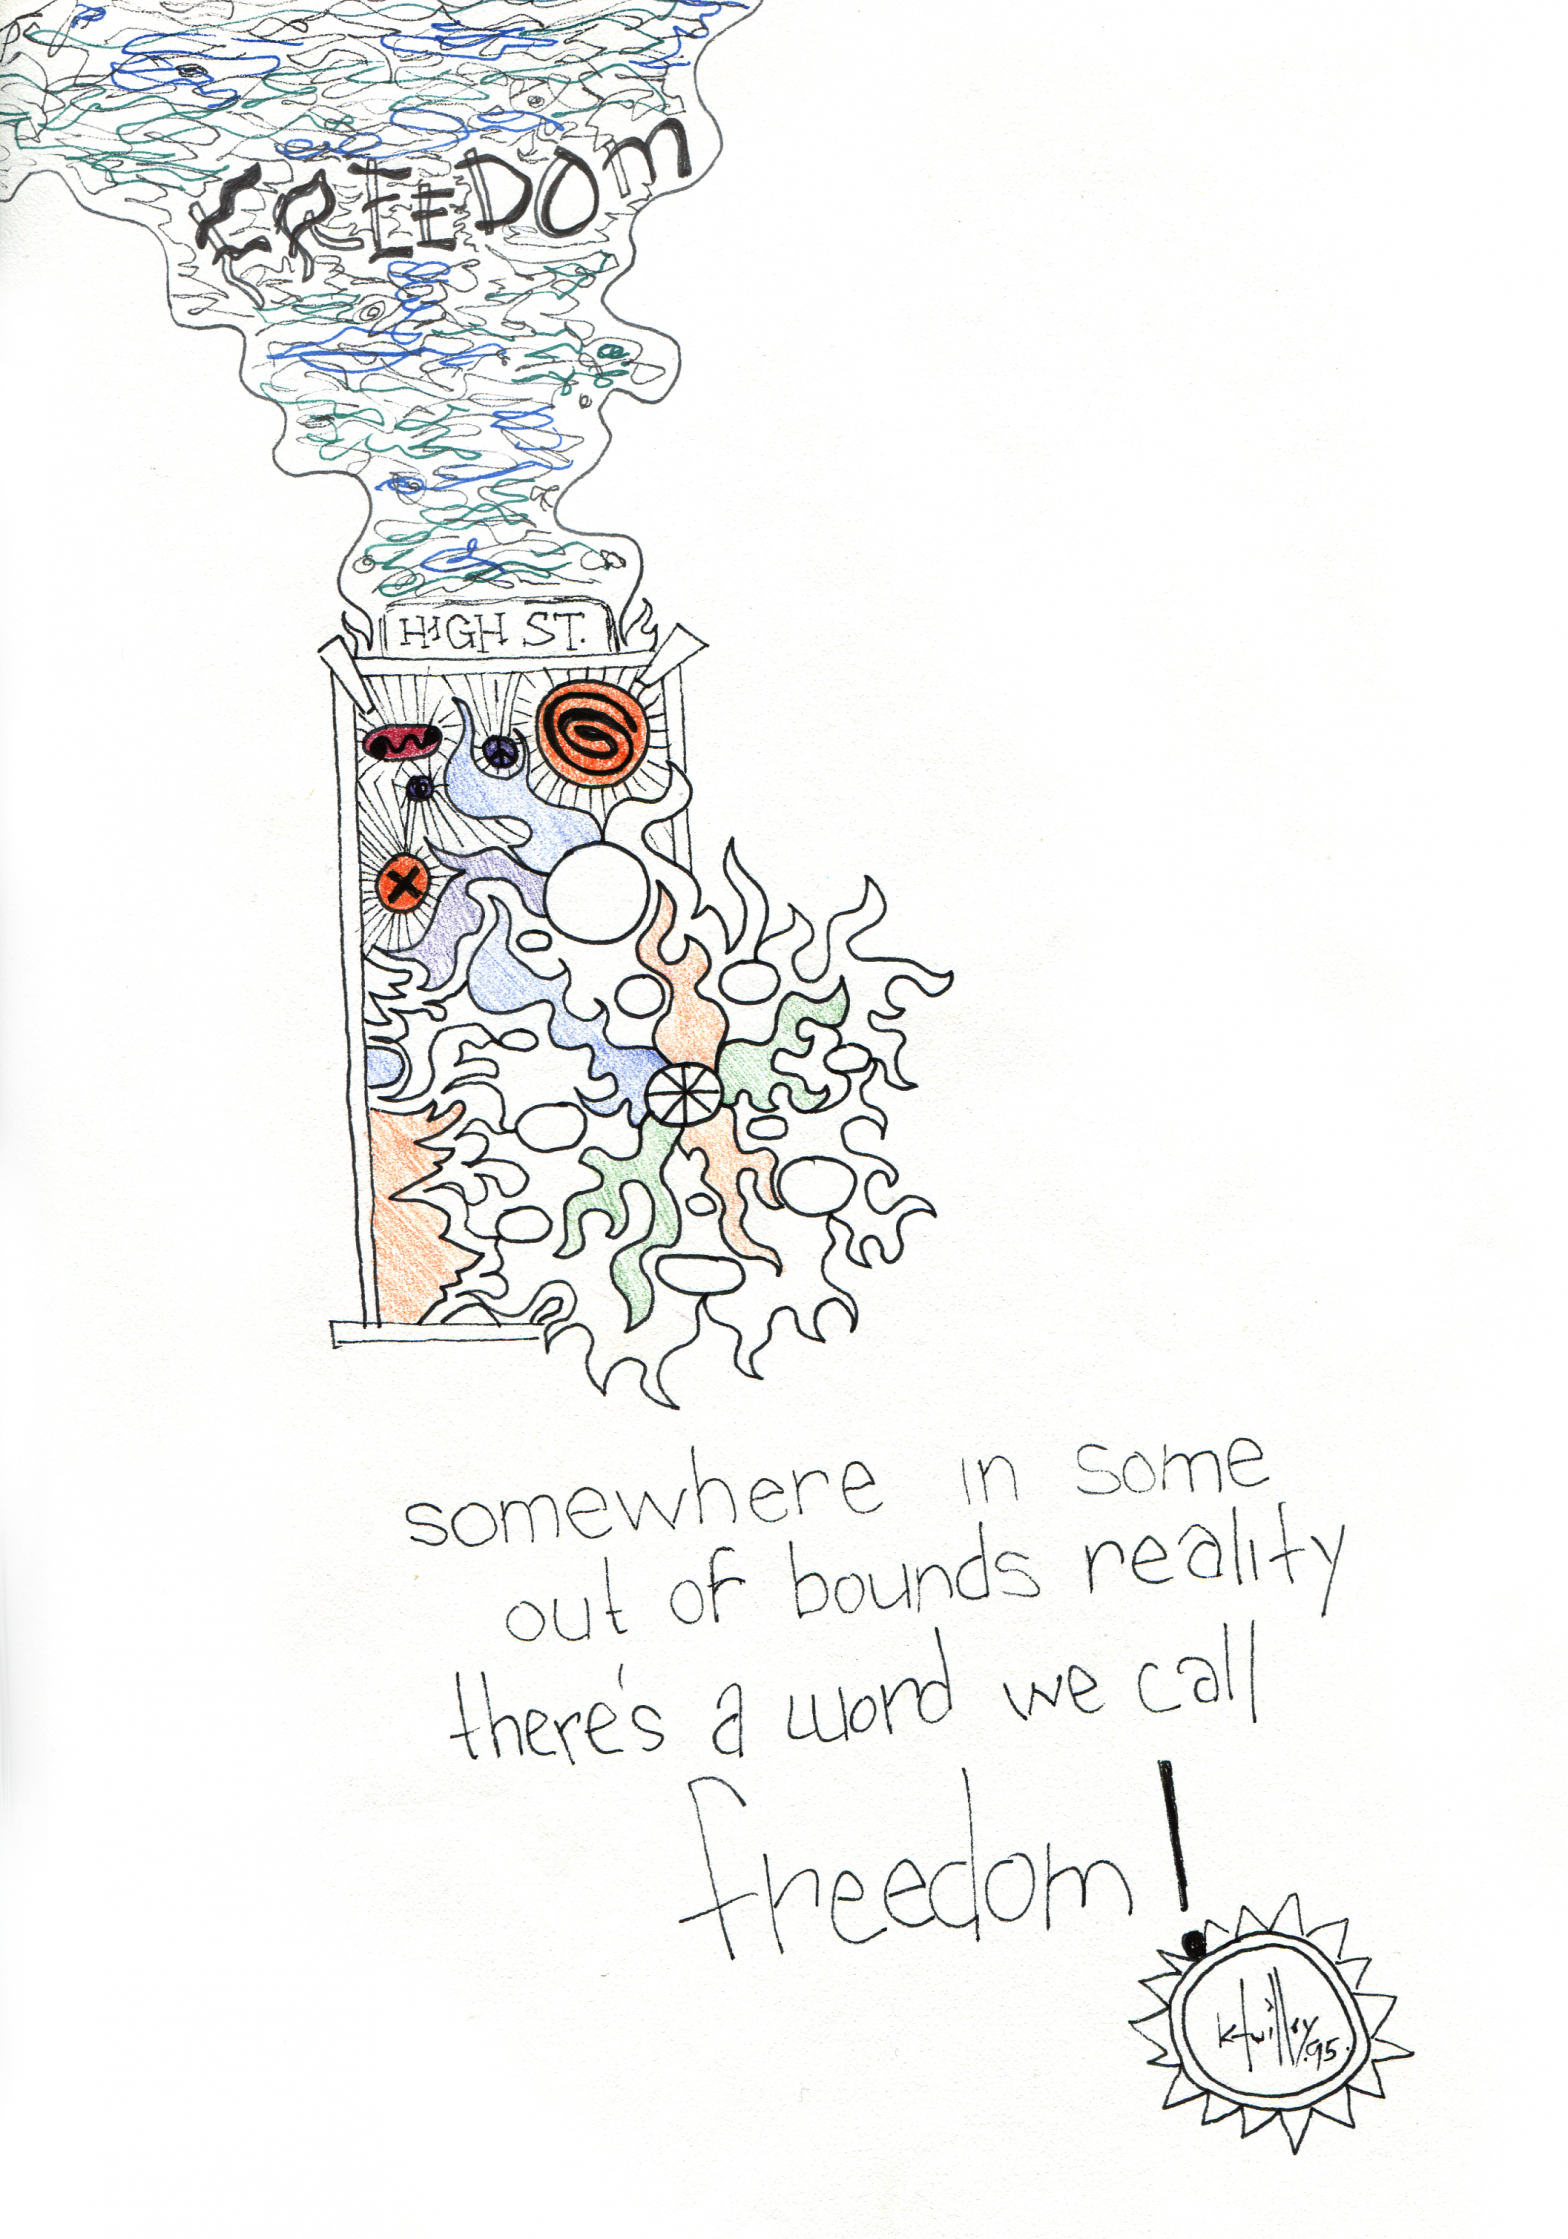 FREEDOM
HIGH ST.
somewhere in some
out of bounds reality
there's a word we call
freedom!
95.